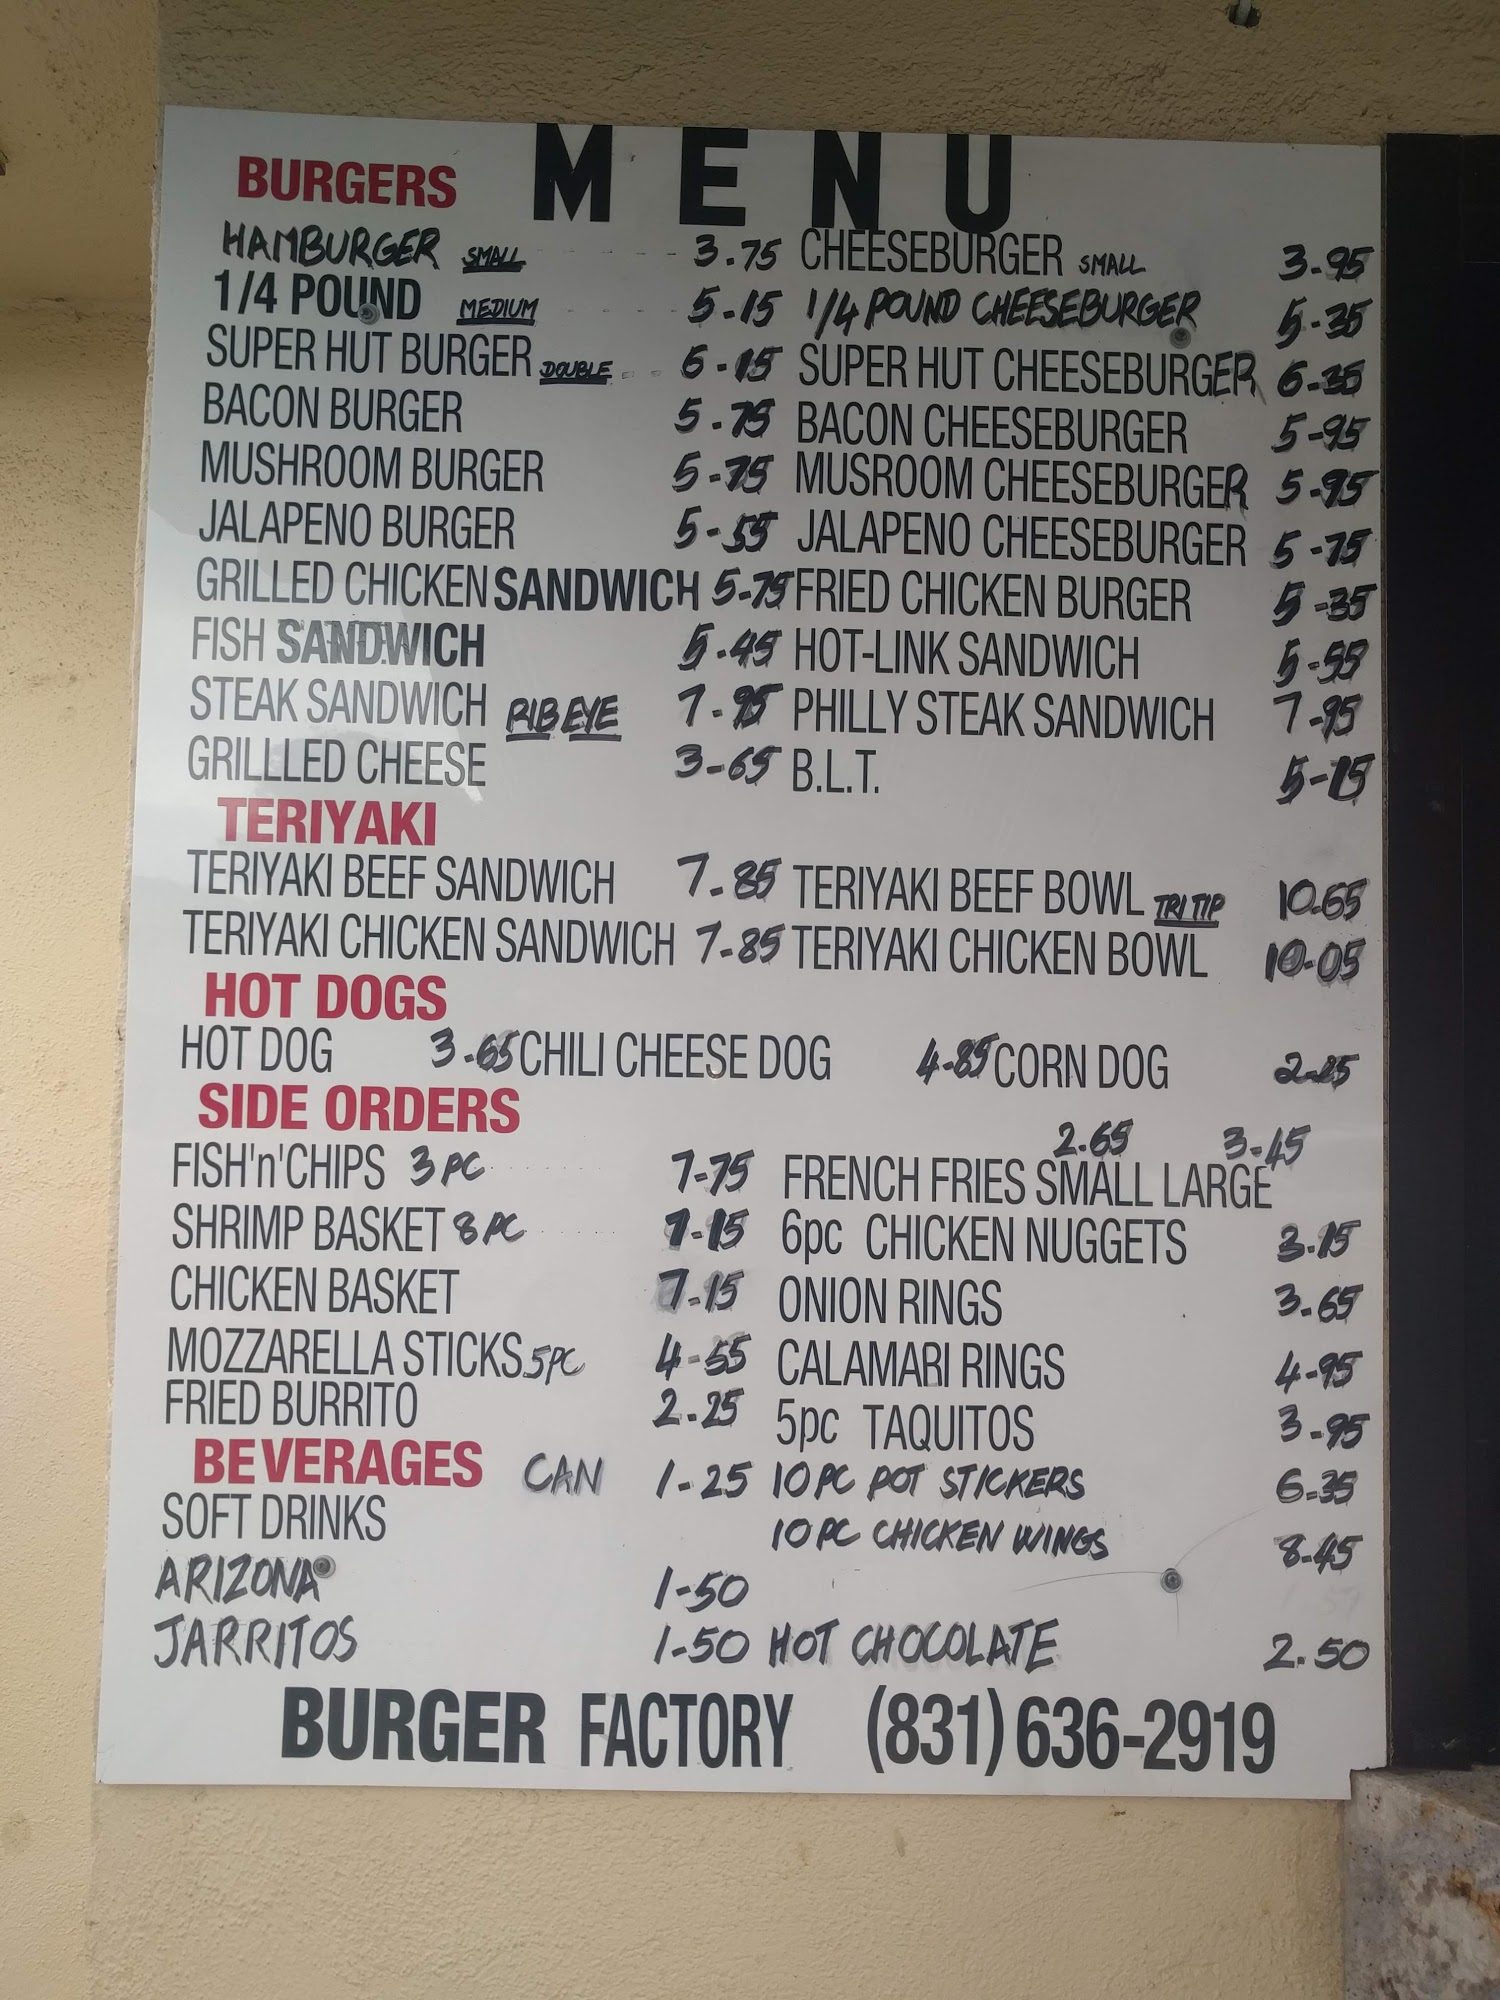 MENU
BURGERS
HAMBURGER SMALL 3.75 CHEESEBURGER SMALL 3-95
1/4 POUND MEDIUM 5-15 1/4 POUND CHEESEBURGER 5-35
SUPER HUT BURGER DOUBLE 6-15 SUPER HUT CHEESEBURGER 6-35
BACON BURGER 5.75 BACON CHEESEBURGER 5-95
MUSHROOM BURGER 5-75 MUSROOM CHEESEBURGER 5-95
JALAPENO BURGER 5-55 JALAPENO CHEESEBURGER 5-75
GRILLED CHICKEN SANDWICH 5-75 FRIED CHICKEN BURGER 5-35
FISH SANDWICH 5.45 HOT-LINK SANDWICH 5-55
STEAK SANDWICH RIB EYE 7-95 PHILLY STEAK SANDWICH 7-95
GRILLLED CHEESE 3-65 B.L.T. 5-15
TERIYAKI
TERIYAKI BEEF SANDWICH 7.85 TERIYAKI BEEF BOWL TRI TIP 10.65
TERIYAKI CHICKEN SANDWICH 7-85 TERIYAKI CHICKEN BOWL 10-05
HOT DOGS
HOT DOG 3.65 CHILI CHEESE DOG 4-85 CORN DOG 2-25
SIDE ORDERS
2.65 3-45
FISH'n'CHIPS 3 PC 7-75 FRENCH FRIES SMALL LARGE
SHRIMP BASKET 8 PC 7-15 6pc CHICKEN NUGGETS 3.15
CHICKEN BASKET 7-15 ONION RINGS 3.65
MOZZARELLA STICKS 5PC 4-55 CALAMARI RINGS 4-95
FRIED BURRITO 2-25 5pc TAQUITOS 3-95
BEVERAGES CAN 1-25 10 PC POT STICKERS 6-35
SOFT DRINKS 10 PC CHICKEN WINGS 8-45
ARIZONA 1-50
JARRITOS 1-50 HOT CHOCOLATE 2.50
BURGER FACTORY (831) 636-2919